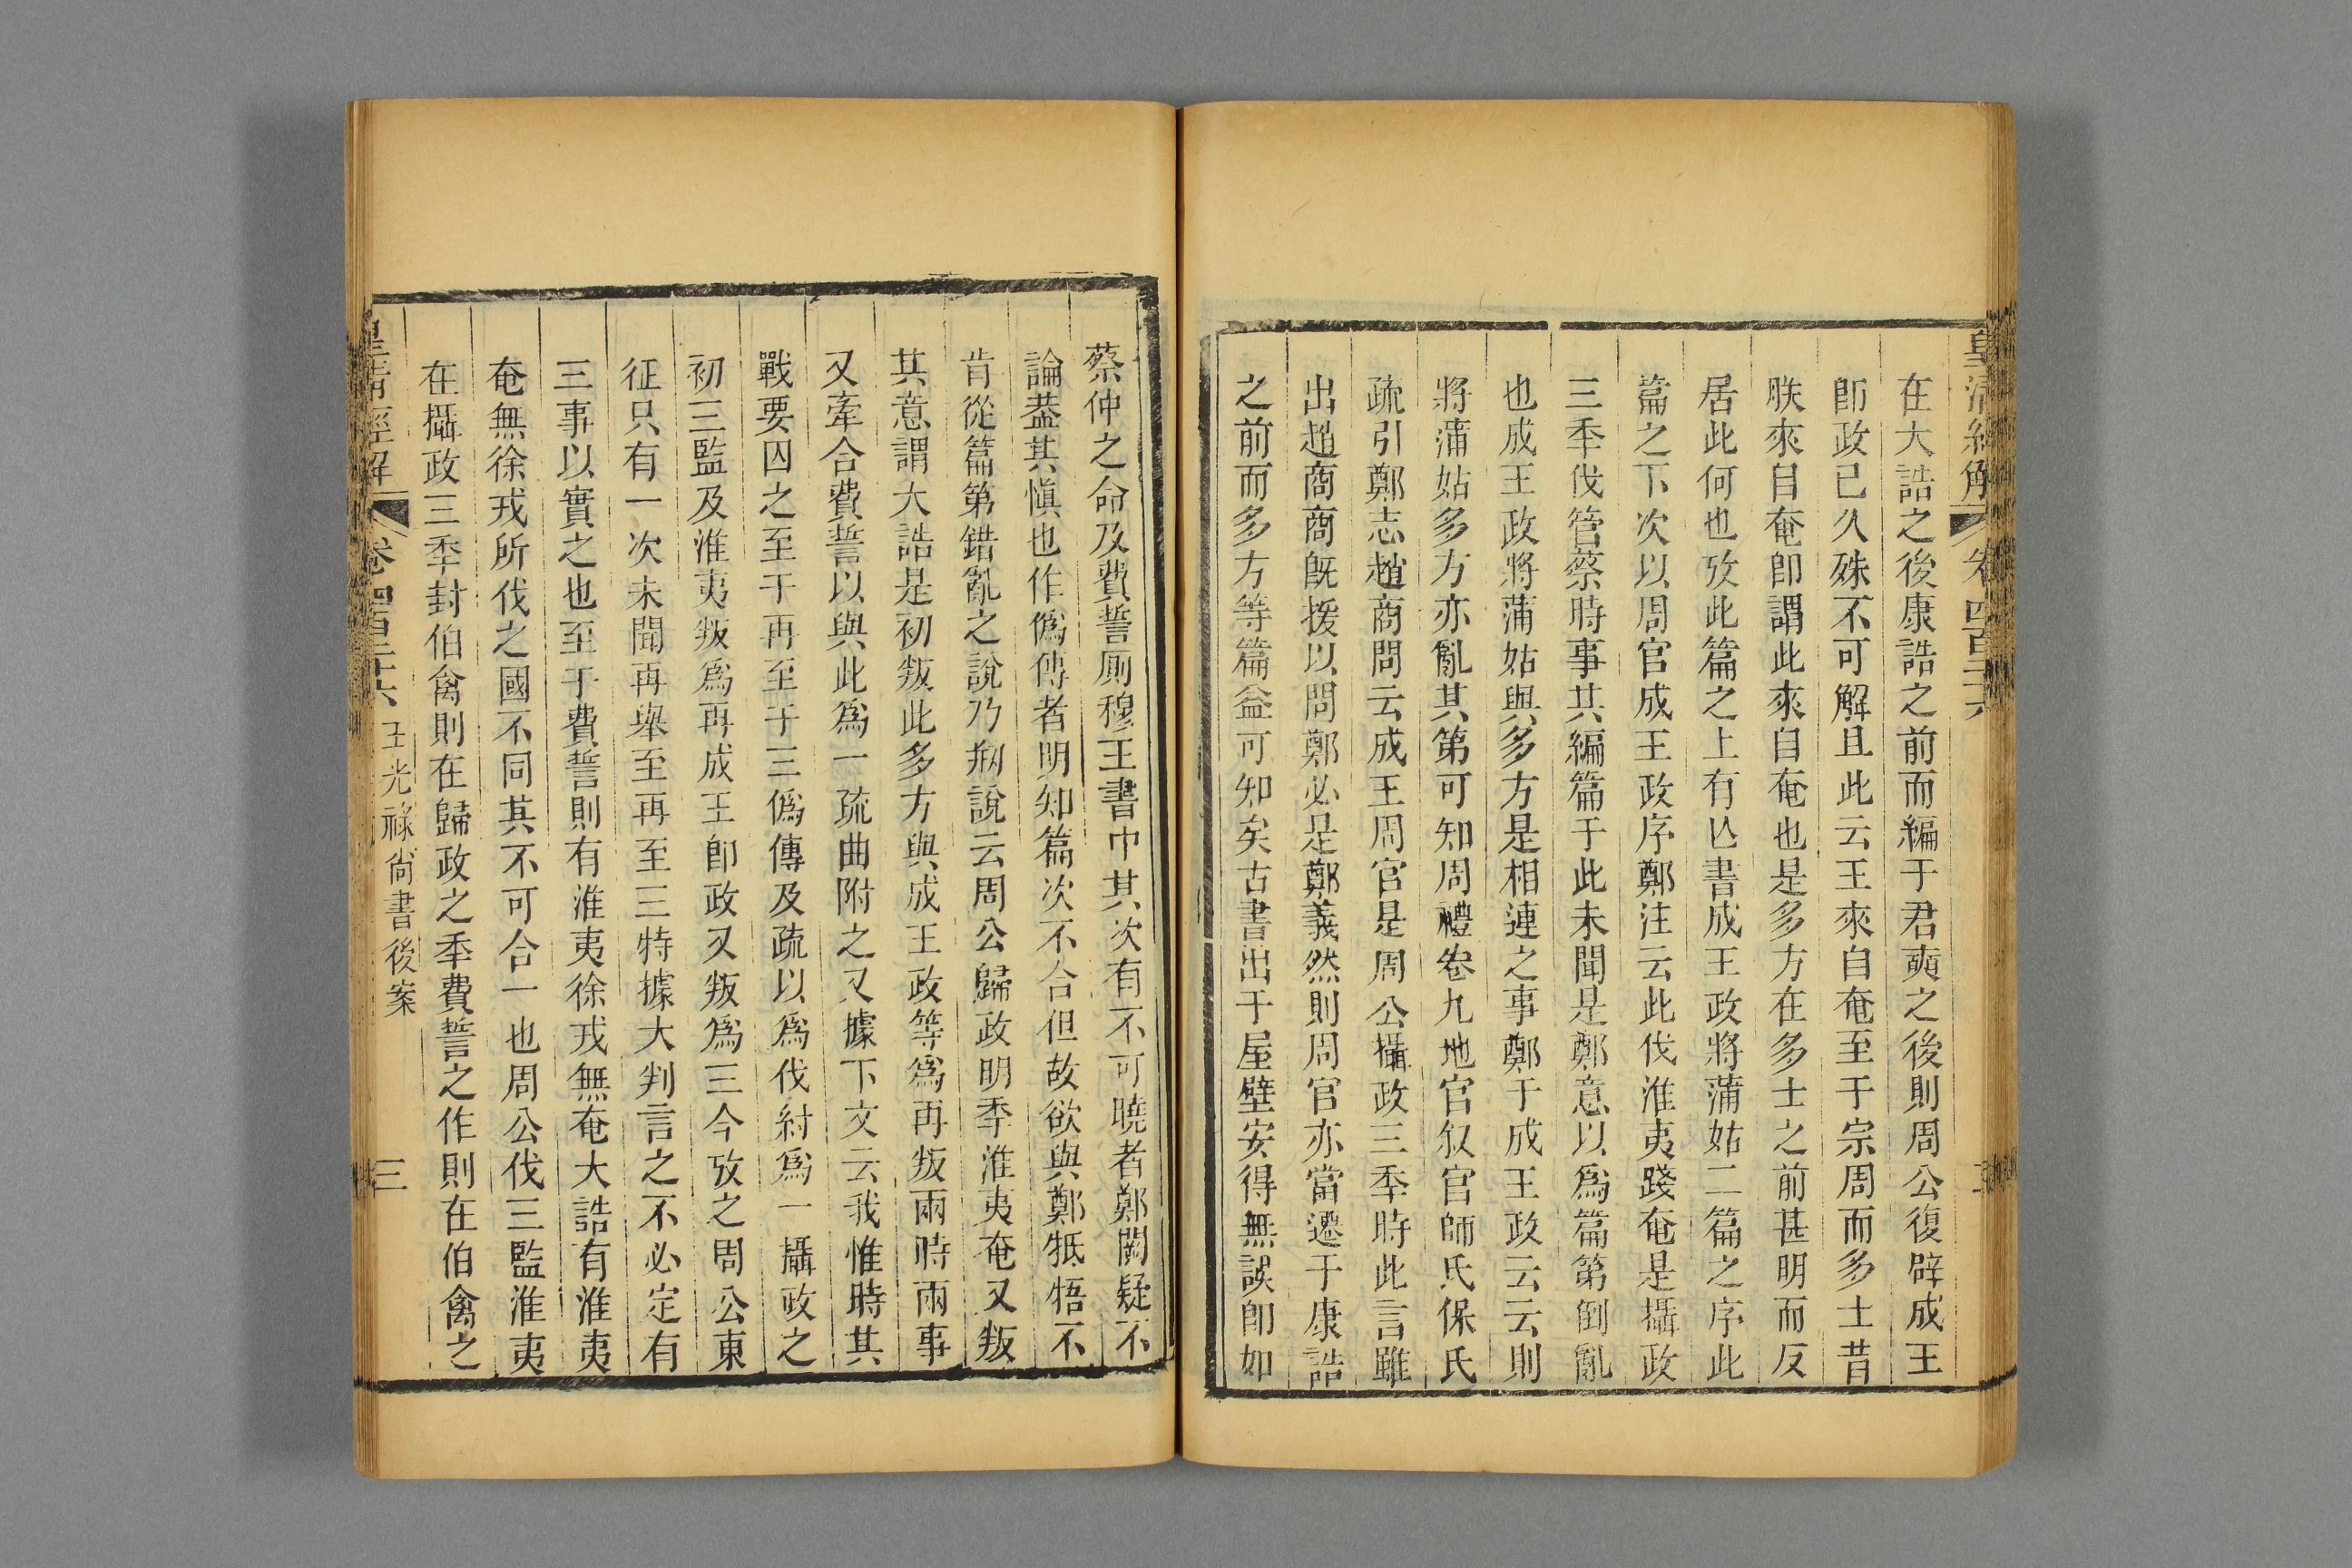 皇清經解
卷四百二十六
在大誥之後康誥之前而編于君奭之後則周公復辟成王
卽政已久殊不可解且此云王來自奄至于宗周而多士昔
朕來自奄卽謂此來自奄也是多方在多士之前甚明而反
居此何也攷此篇之上有亾書成王政將蒲姑二篇之序此
篇之下次以周官成王政序鄭注云此伐淮夷踐奄是攝政
三秊伐管蔡時事其編篇于此未聞是鄭意以爲篇第倒亂
也成王政將蒲姑與多方是相連之事鄭于成王政云云則
將蒲姑多方亦亂其第可知周禮卷九地官叙官師氏保氏
疏引鄭志趙商問云成王周官是周公攝政三秊時此言雖
出趙商商旣援以問鄭必是鄭義然則周官亦當遷于康誥
之前而多方等篇益可知矣古書出于屋壁安得無誤卽如
蔡仲之命及費誓厠穆王書中其次有不可曉者鄭闕疑不
論葢其愼也作僞傳者明知篇次不合但故欲與鄭牴牾不
肯從篇第錯亂之說乃剏說云周公歸政明秊淮夷奄又叛
其意謂大誥是初叛此多方與成王政等爲再叛兩時兩事
又牽合費誓以與此爲一疏曲附之又據下文云我惟時其
戰要囚之至于再至于三僞傳及疏以爲伐紂爲一攝政之
初三監及淮夷叛爲再成王卽政又叛爲三今攷之周公東
征只有一次未聞再舉至再至三特據大判言之不必定有
三事以實之也至于費誓則有淮夷徐戎無奄大誥有淮夷
奄無徐戎所伐之國不同其不可合一也周公伐三監淮夷
在攝政三秊封伯禽則在歸政之秊費誓之作則在伯禽之
皇清經解
卷四百二十六
王光祿尙書後案
三